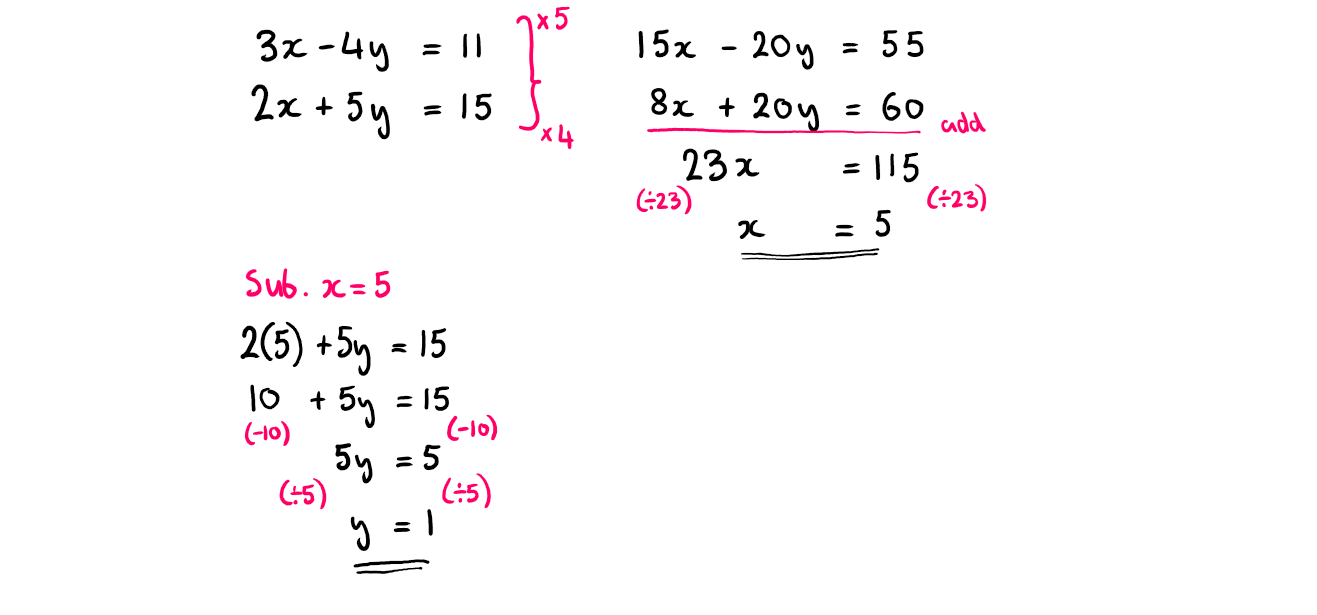 3x - 4y = 11
2x + 5y = 15
×5
×4
15x - 20y = 55
8x + 20y = 60 add
23x = 115
(÷23) (÷23)
x = 5
Sub. x = 5
2(5) + 5y = 15
10 + 5y = 15
(-10) (-10)
5y = 5
(÷5) (÷5)
y = 1